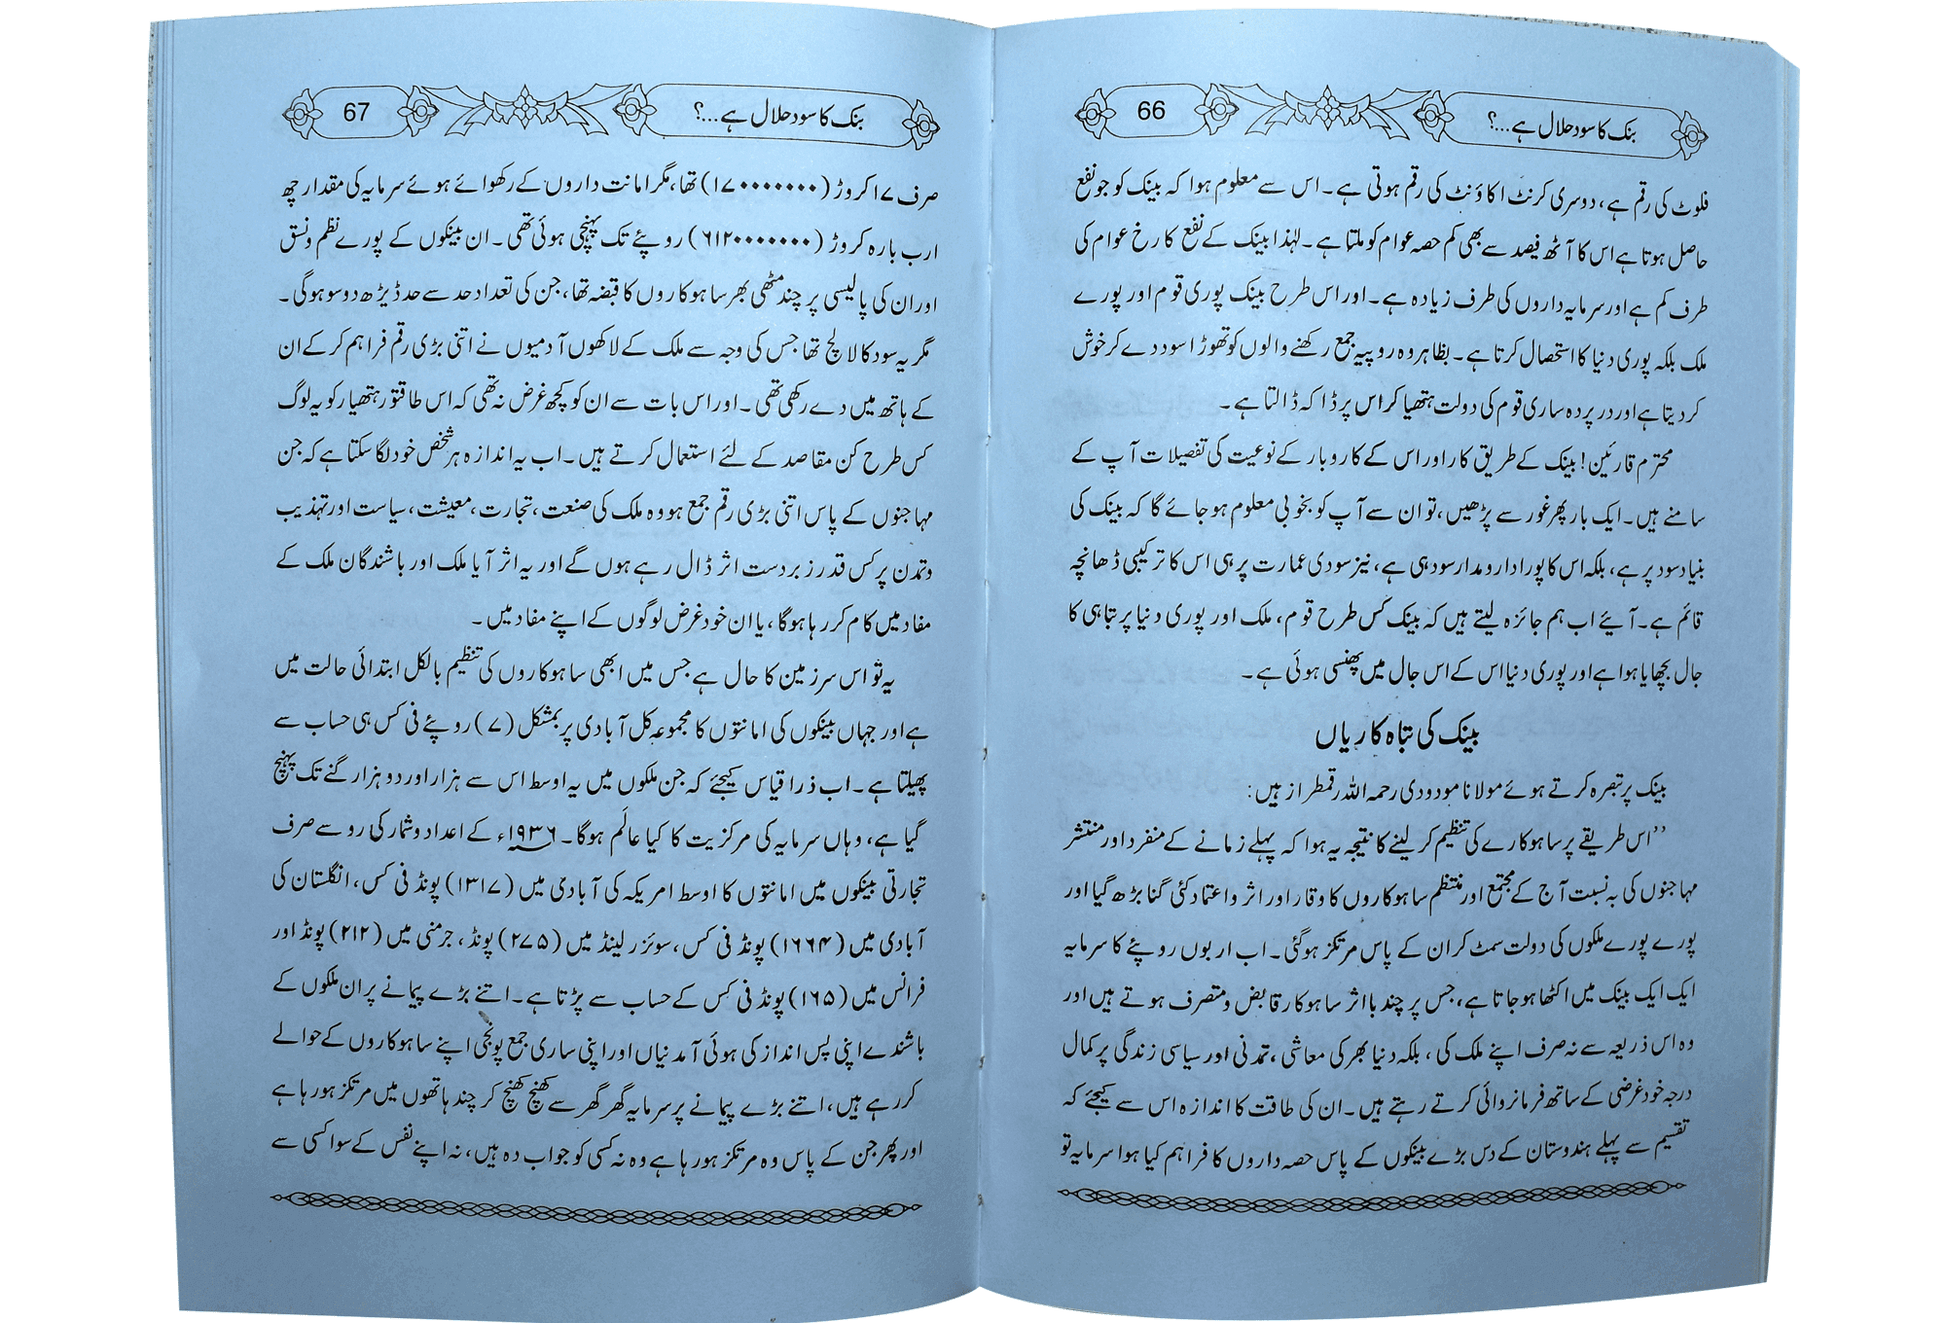 بنک کا سود حلال ہے...؟ 66
فلوٹ کی رقم ہے، دوسری کرنٹ اکاؤنٹ کی رقم ہوتی ہے۔ اس سے معلوم ہوا کہ بینک کو جو نفع
حاصل ہوتا ہے اس کا آٹھ فیصد سے بھی کم حصہ عوام کو ملتا ہے۔ لہٰذا بینک کے نفع کا رخ عوام کی
طرف کم ہے اور سرمایہ داروں کی طرف زیادہ ہے۔ اور اس طرح بینک پوری قوم اور پورے
ملک بلکہ پوری دنیا کا استحصال کرتا ہے۔ بظاہر وہ روپیہ جمع رکھنے والوں کو تھوڑا سود دے کر خوش
کر دیتا ہے اور در پردہ ساری قوم کی دولت ہتھیا کر اس پر ڈاکہ ڈالتا ہے۔
محترم قارئین! بینک کے طریق کار اور اس کے کاروبار کے نوعیت کی تفصیلات آپ کے
سامنے ہیں۔ ایک بار پھر غور سے پڑھیں، تو ان سے آپ کو بخوبی معلوم ہو جائے گا کہ بینک کی
بنیاد سود پر ہے، بلکہ اس کا پورا دار و مدار سود ہی ہے، نیز سودی عمارت پر ہی اس کا ترکیبی ڈھانچہ
قائم ہے۔ آیئے اب ہم جائزہ لیتے ہیں کہ بینک کس طرح قوم، ملک اور پوری دنیا پر تباہی کا
جال بچھایا ہوا ہے اور پوری دنیا اس کے اس جال میں پھنسی ہوئی ہے۔
بینک کی تباہ کاریاں
بینک پر تبصرہ کرتے ہوئے مولانا مودودی رحمہ اللہ رقمطراز ہیں:
’’اس طریقے پر ساہوکارے کی تنظیم کر لینے کا نتیجہ یہ ہوا کہ پہلے زمانے کے منفرد اور منتشر
مہاجنوں کی بہ نسبت آج کے مجتمع اور منتظم ساہوکاروں کا وقار اور اثر و اعتماد کئی گنا بڑھ گیا اور
پورے پورے ملکوں کی دولت سمٹ کر ان کے پاس مرتکز ہوگئی۔ اب اربوں روپئے کا سرمایہ
ایک ایک بینک میں اکٹھا ہو جاتا ہے، جس پر چند با اثر ساہوکار قابض و متصرف ہوتے ہیں اور
وہ اس ذریعہ سے نہ صرف اپنے ملک کی، بلکہ دنیا بھر کی معاشی، تمدنی اور سیاسی زندگی پر کمال
درجہ خود غرضی کے ساتھ فرمانروائی کرتے رہتے ہیں۔ ان کی طاقت کا اندازہ اس سے کیجئے کہ
تقسیم سے پہلے ہندوستان کے دس بڑے بینکوں کے پاس حصہ داروں کا فراہم کیا ہوا سرمایہ تو
بنک کا سود حلال ہے...؟ 67
صرف ۱۷ کروڑ (۱۷۰۰۰۰۰۰۰) تھا، مگر امانت داروں کے رکھوائے ہوئے سرمایہ کی مقدار چھ
ارب بارہ کروڑ (۶۱۲۰۰۰۰۰۰۰) روپئے تک پہنچی ہوئی تھی۔ ان بینکوں کے پورے نظم و نسق
اور ان کی پالیسی پر چند مٹھی بھر ساہوکاروں کا قبضہ تھا، جن کی تعداد حد سے حد ڈیڑھ دو سو ہوگی۔
مگر یہ سود کا لالچ تھا جس کی وجہ سے ملک کے لاکھوں آدمیوں نے اتنی بڑی رقم فراہم کر کے ان
کے ہاتھ میں دے رکھی تھی۔ اور اس بات سے ان کو کچھ غرض نہ تھی کہ اس طاقتور ہتھیار کو یہ لوگ
کس طرح کن مقاصد کے لئے استعمال کرتے ہیں۔ اب یہ اندازہ ہر شخص خود لگا سکتا ہے کہ جن
مہاجنوں کے پاس اتنی بڑی رقم جمع ہو وہ ملک کی صنعت، تجارت، معیشت، سیاست اور تہذیب
و تمدن پر کس قدر زبردست اثر ڈال رہے ہوں گے اور یہ اثر آیا ملک اور باشندگان ملک کے
مفاد میں کام کر رہا ہوگا، یا ان خود غرض لوگوں کے اپنے مفاد میں۔
یہ تو اس سرزمین کا حال ہے جس میں ابھی ساہوکاروں کی تنظیم بالکل ابتدائی حالت میں
ہے اور جہاں بینکوں کی امانتوں کا مجموعہ کل آبادی پر بمشکل (۷) روپئے فی کس ہی حساب سے
پھیلتا ہے۔ اب ذرا قیاس کیجئے کہ جن ملکوں میں یہ اوسط اس سے ہزار اور دو ہزار گنے تک پہنچ
گیا ہے، وہاں سرمایہ کی مرکزیت کا کیا عالَم ہوگا۔ ۱۹۳۶ء کے اعداد و شمار کی رو سے صرف
تجارتی بینکوں میں امانتوں کا اوسط امریکہ کی آبادی میں (۱۳۱۷) پونڈ فی کس، انگلستان کی
آبادی میں (۱۶۶۴) پونڈ فی کس، سوئزر لینڈ میں (۲۷۵) پونڈ، جرمنی میں (۲۱۲) پونڈ اور
فرانس میں (۱۶۵) پونڈ فی کس کے حساب سے پڑتا ہے۔ اتنے بڑے پیمانے پر ان ملکوں کے
باشندے اپنی پس انداز کی ہوئی آمدنیاں اور اپنی ساری جمع پونجی اپنے ساہوکاروں کے حوالے
کر رہے ہیں، اتنے بڑے پیمانے پر سرمایہ گھر گھر سے کھنچ کھنچ کر چند ہاتھوں میں مرتکز ہو رہا ہے
اور پھر جن کے پاس وہ مرتکز ہو رہا ہے وہ نہ کسی کو جواب دہ ہیں، نہ اپنے نفس کے سوا کسی سے